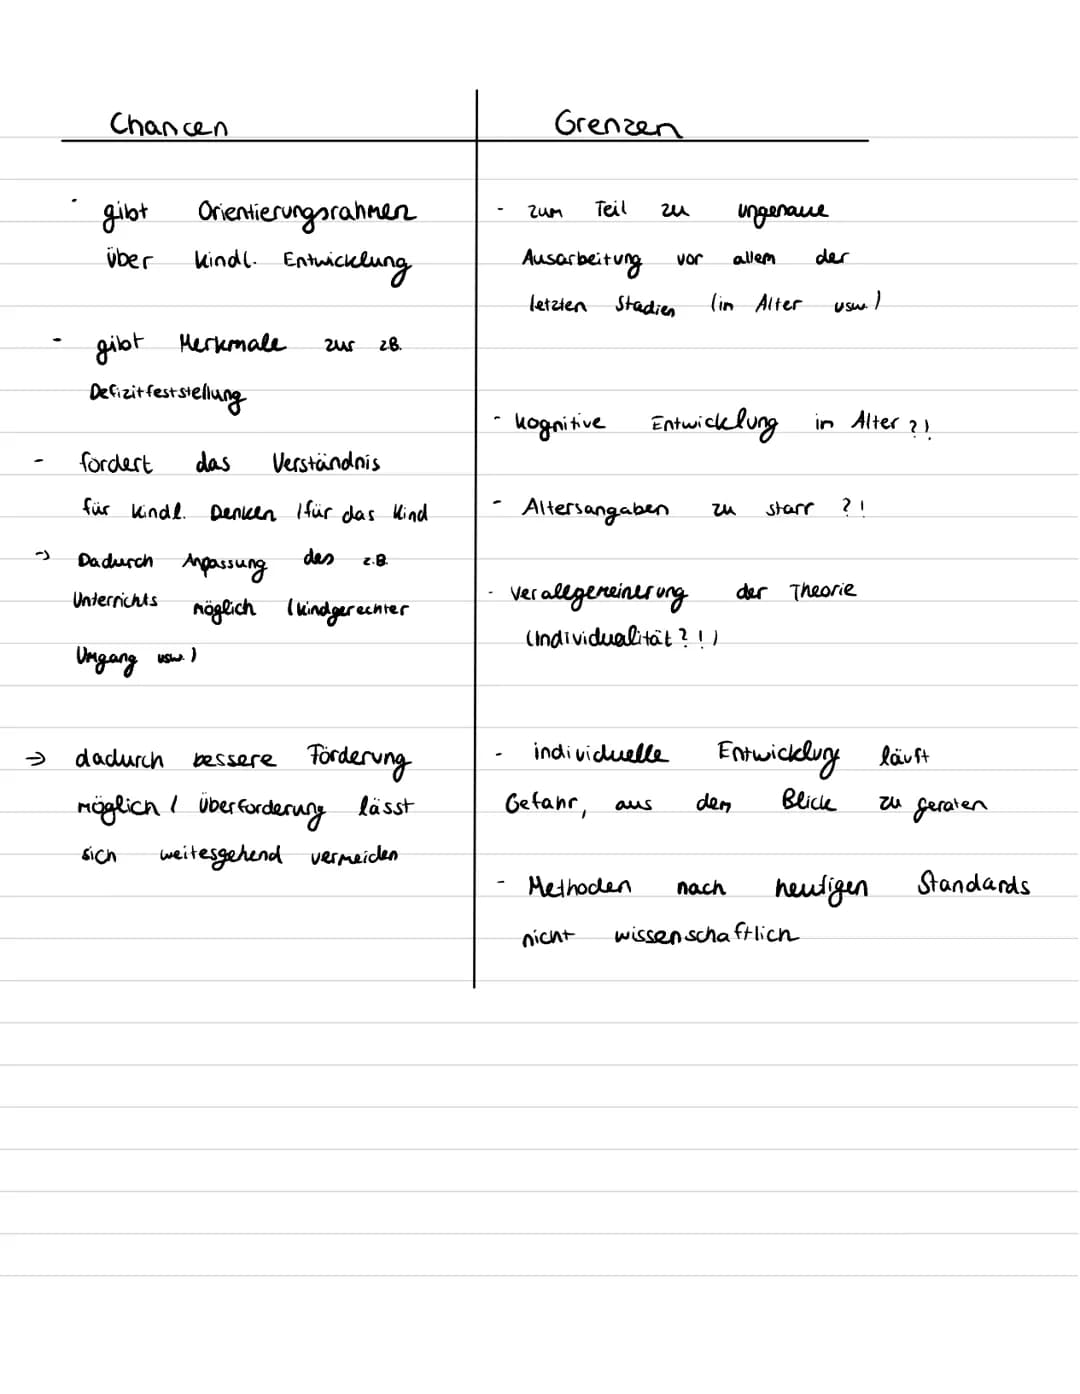 Chancen
· gibt Orientierungsrahmen
über kindl. Entwicklung
- gibt Merkmale zur zB.
Defizitfeststellung
- fordert das Verständnis
für kindl. Denken / für das Kind
-> Dadurch Anpassung des z.B.
Unterrichts möglich (kindgerechter
Umgang usw.)
-> dadurch bessere Förderung
möglich / Überforderung lässt
sich weitesgehend vermeiden
Grenzen
- zum Teil zu ungenaue
Ausarbeitung vor allem der
letzten Stadien (in Alter usw.)
- kognitive Entwicklung in Alter ?!
- Altersangaben zu starr ?!
- Verallegemeinerung der Theorie
(Individualität?!)
- individuelle Entwicklung läuft
Gefahr, aus dem Blick zu geraten
- Methoden nach heutigen Standards
nicht wissenschaftlich